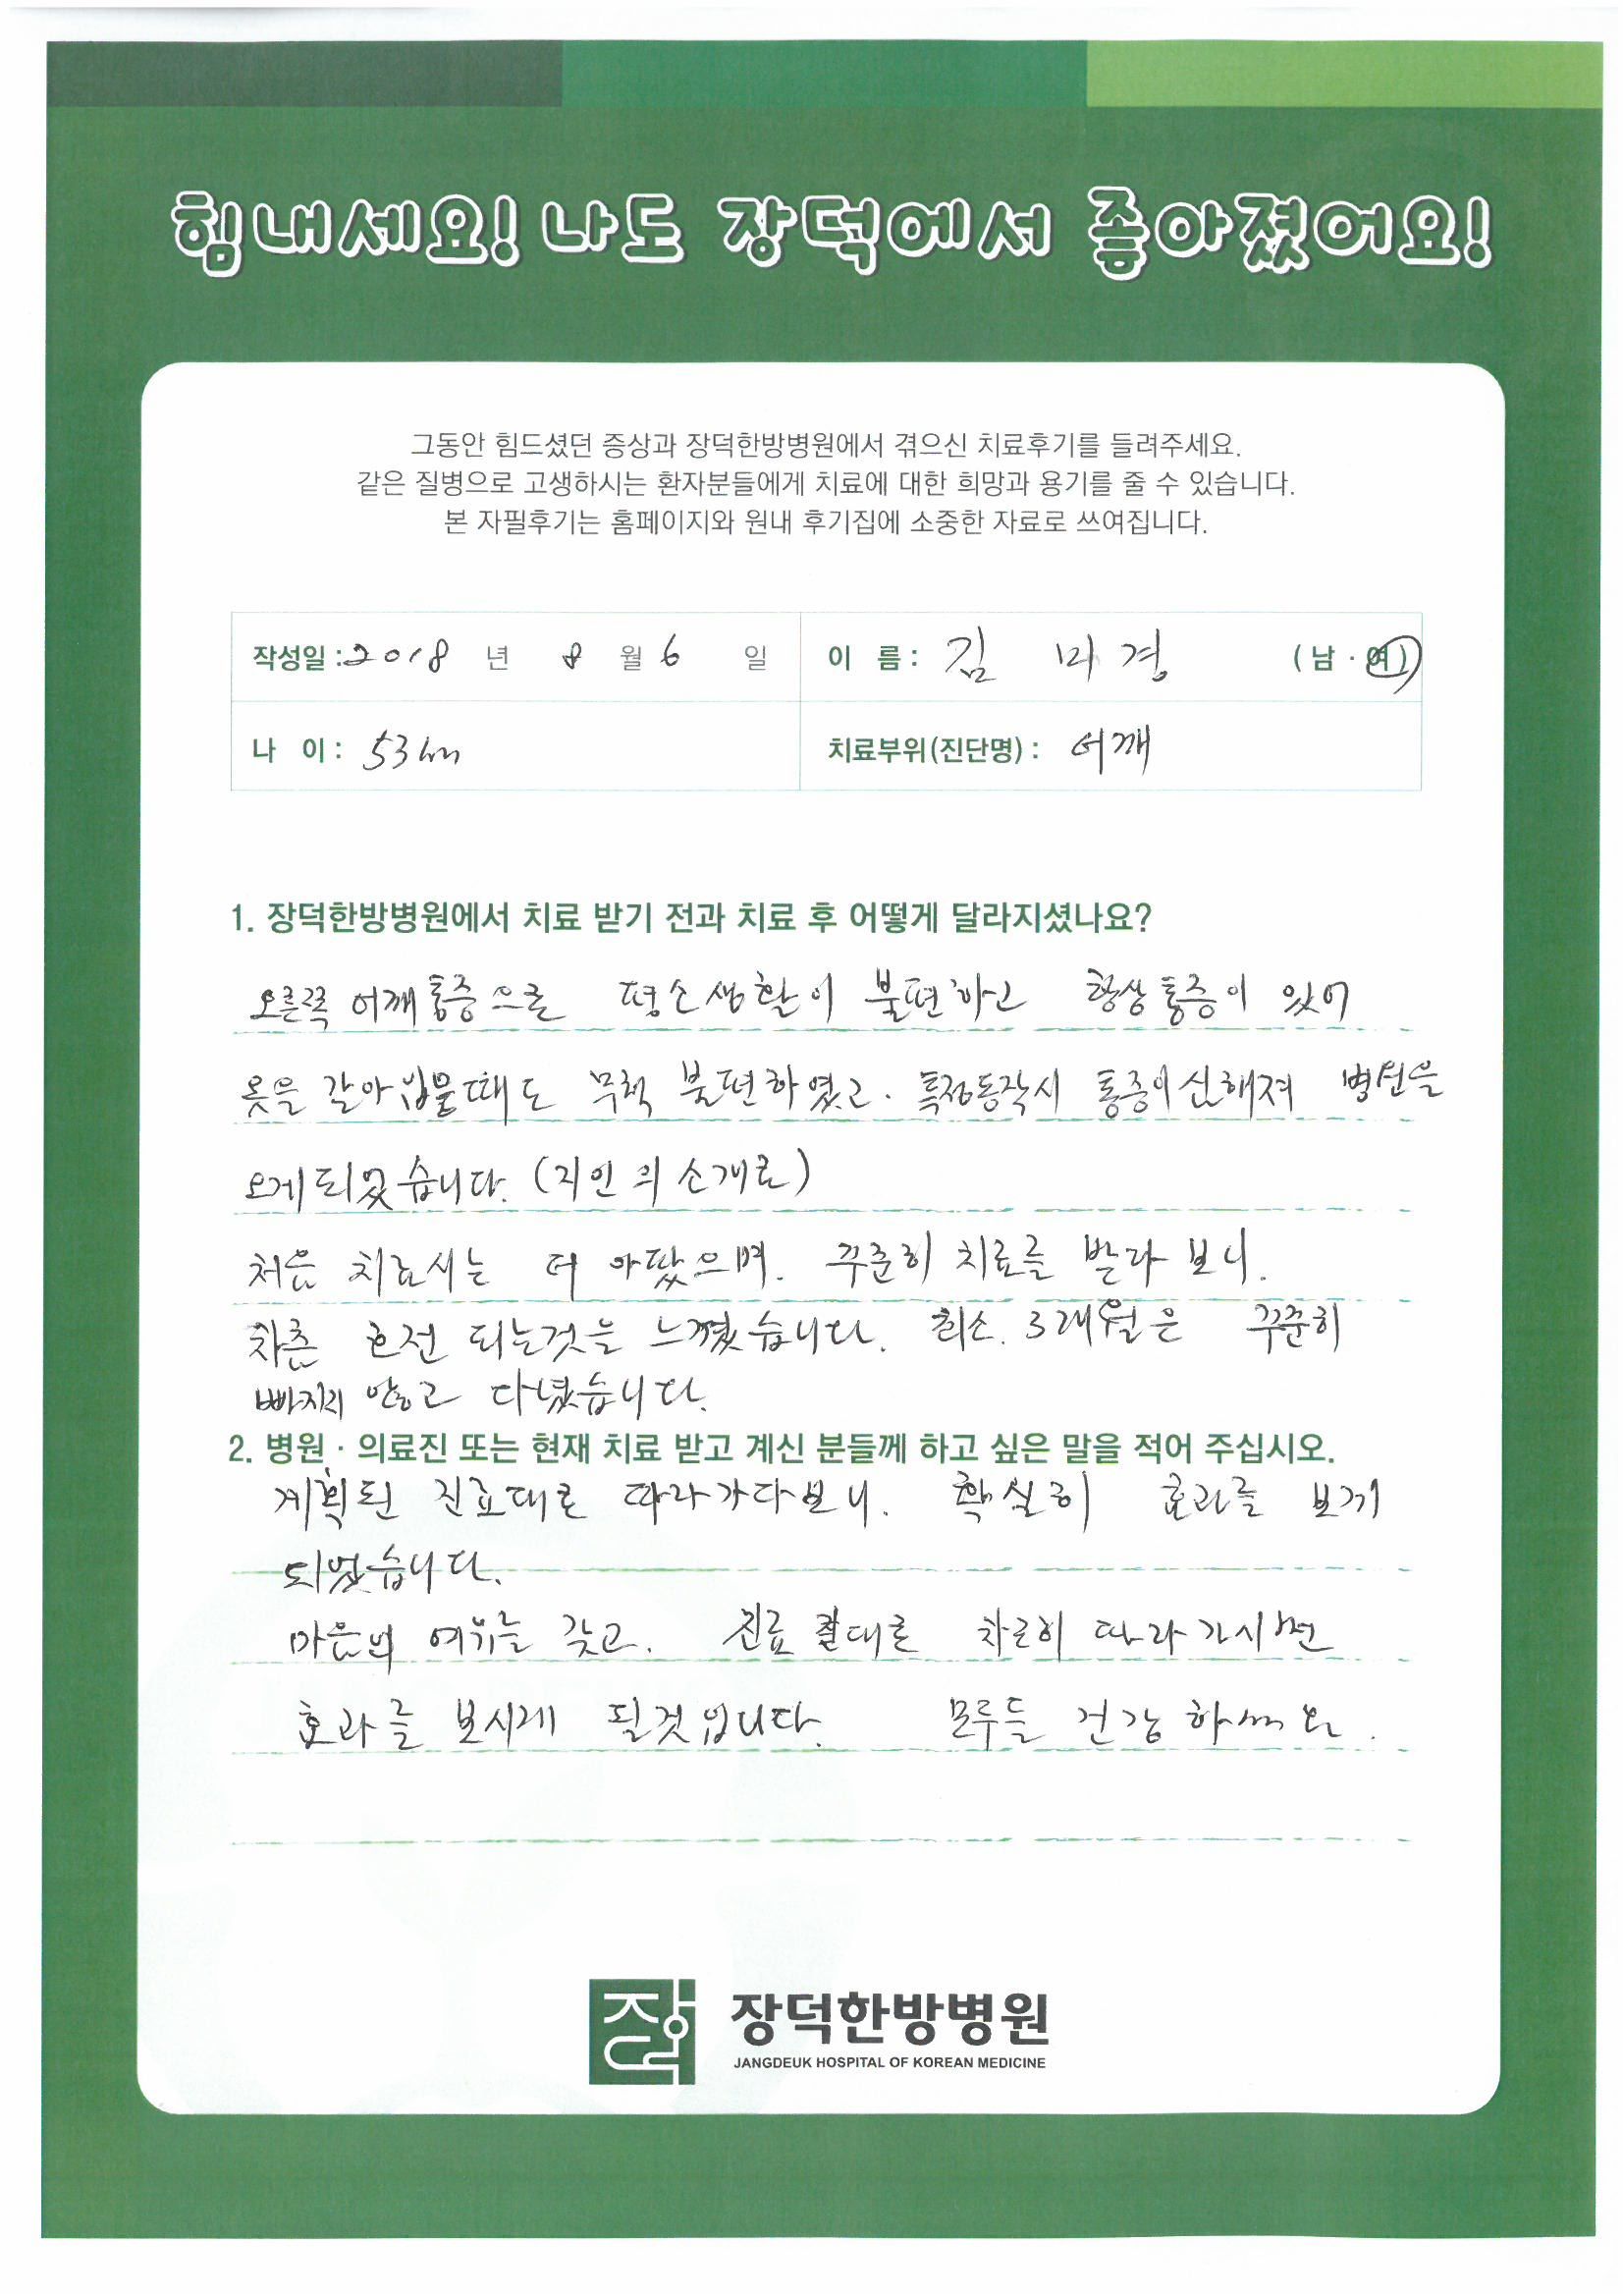 힘내세요! 나도 장덕에서 좋아졌어요!
그동안 힘드셨던 증상과 장덕한방병원에서 겪으신 치료후기를 들려주세요.
같은 질병으로 고생하시는 환자분들에게 치료에 대한 희망과 용기를 줄 수 있습니다.
본 자필후기는 홈페이지와 원내 후기집에 소중한 자료로 쓰여집니다.
작성일 : 2018 년 8 월 6 일 이 름 : 김 미 경 ( 남 · 여 )
나 이 : 53세 치료부위(진단명) : 어깨
1. 장덕한방병원에서 치료 받기 전과 치료 후 어떻게 달라지셨나요?
오른쪽 어깨통증으로 평소생활이 불편하고 항상통증이 있어
옷을 갈아입을때도 무척 불편하였고. 특정동작시 통증이심해져 병원을
오게되었습니다. (지인의 소개로)
처음 치료시는 더 아팠으며. 꾸준히 치료를 받다 보니.
차츰 호전 되는것을 느꼈습니다. 최소. 3개월은 꾸준히
빠지지 않고 다녔습니다.
2. 병원 · 의료진 또는 현재 치료 받고 계신 분들께 하고 싶은 말을 적어 주십시오.
계획된 진료대로 따라가다보니. 확실히 효과를 보게
되었습니다.
마음의 여유를 갖고. 진료 대로 따라가시면
효과를 보시게 될것입니다. 모두들 건강하세요.
장덕한방병원
JANGDEUK HOSPITAL OF KOREAN MEDICINE